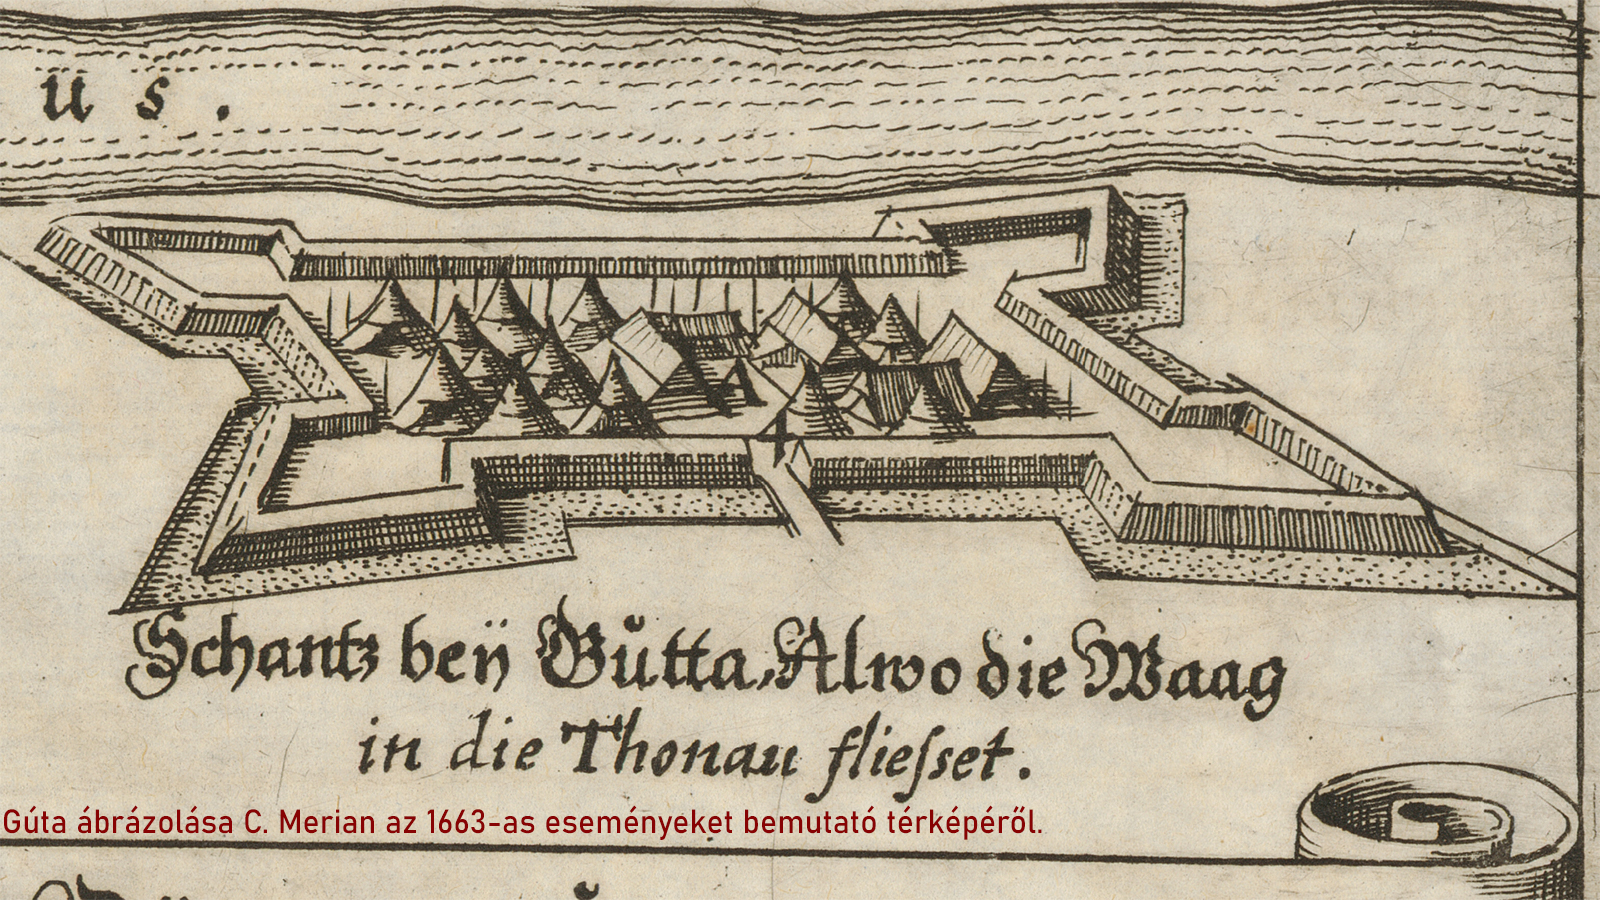 u s .
Schantz beÿ Gůtta, Alwo die Waag
in die Thonau fliesset.
Gúta ábrázolása C. Merian az 1663-as eseményeket bemutató térképéről.